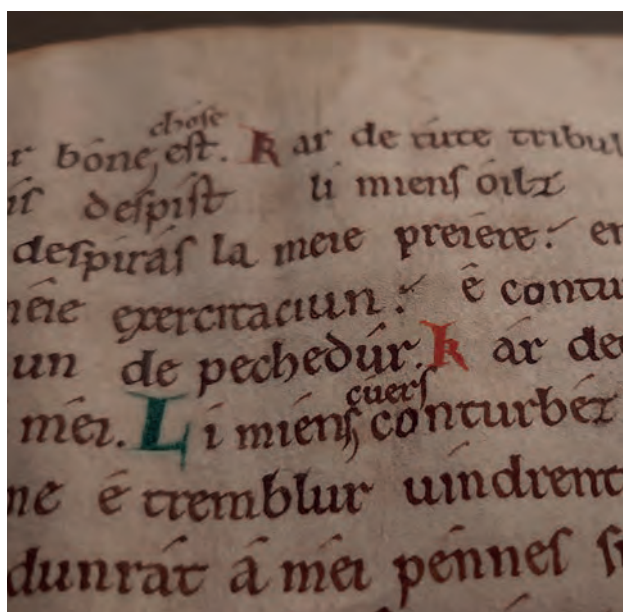 chose
r bone, est. Kar de tute tribul
is despist li miens oilz
despiras la meie preiere. en
meie exercitaciun. é contu
un de pechedúr. Kar de
cuers
méi. Li miens conturbez
ne é tremblur uindrent
dunrát á méi pennes su